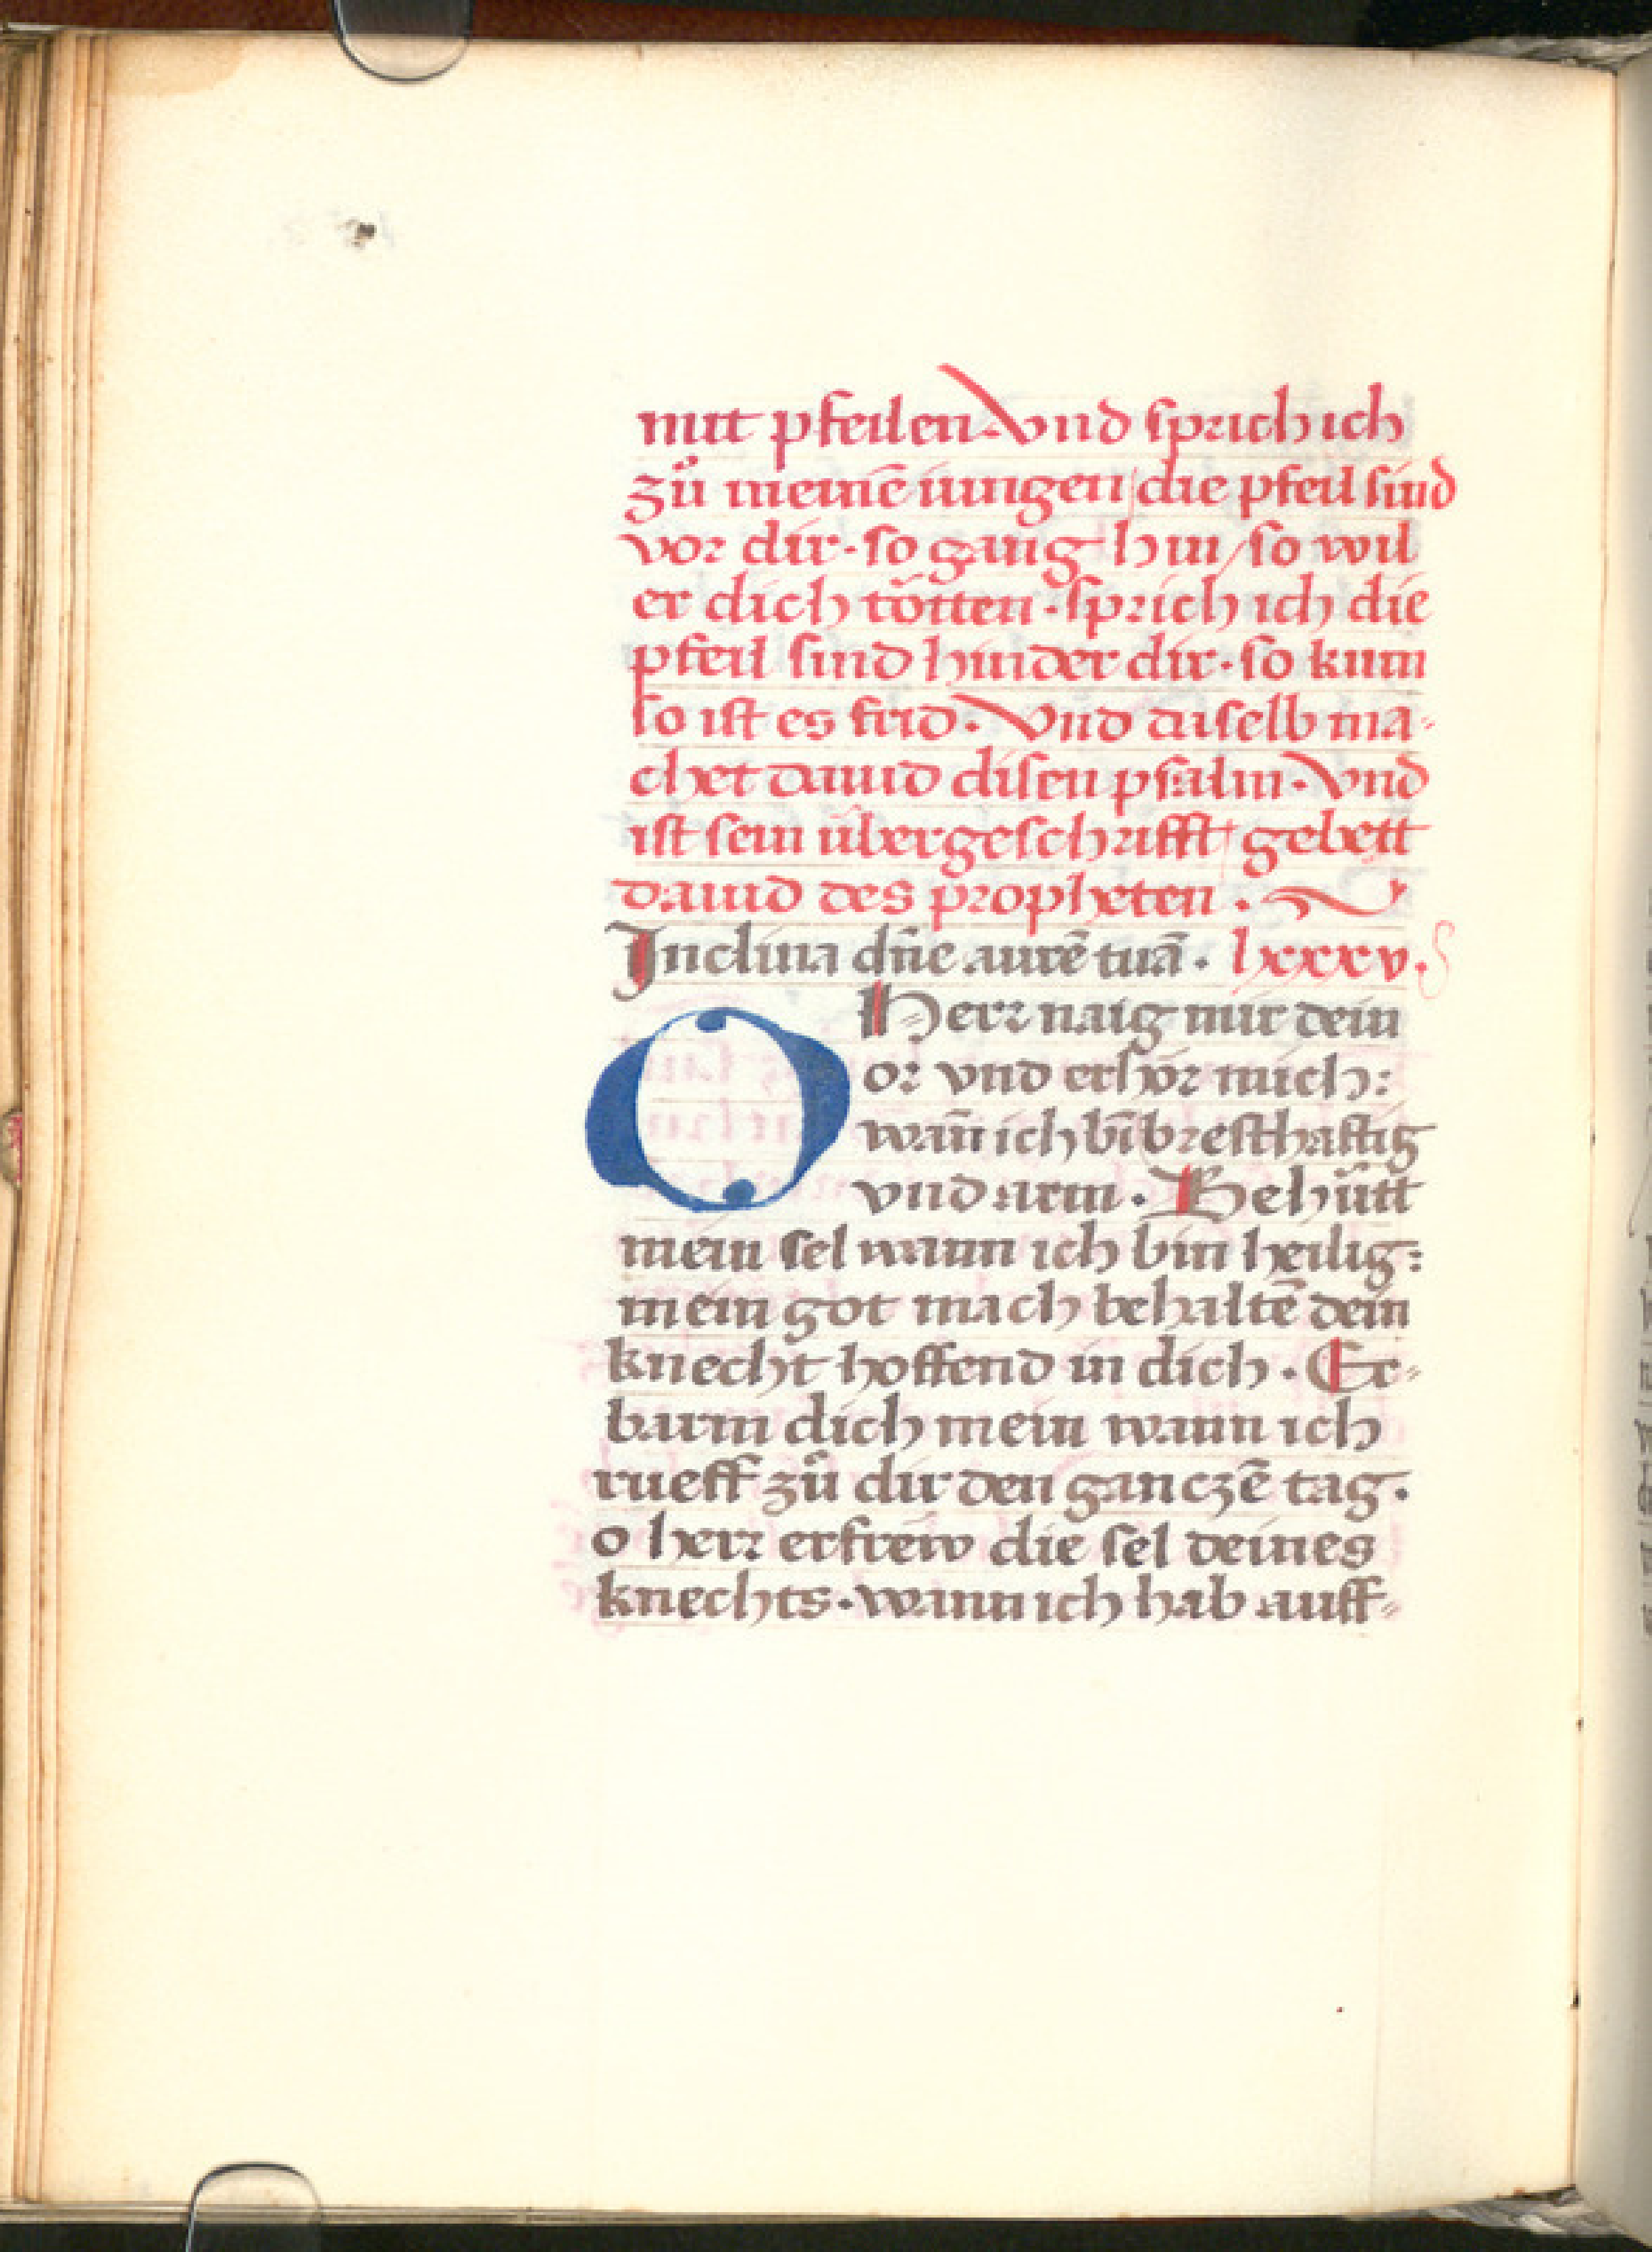 mit pfeilen. Vnd sprich ich
zů meinē iungen die pfeil sind
vor dir. so gang hin / so wil
er dich tötten. sprich ich die
pfeil sind hinder dir. so kum
so ist es frid. Vnd diselb ma-
chet dauid disen psalm. Vnd
ist sein übergeschrifft gebett
dauid des propheten.
Inclina dn̄e aurē tuā. lxxxv.
O Herr naig mir dein
or vnd erhör mich:
wan̄ ich bī bresthafftig
vnd arm. Behütt
mein sel wann ich bin heilig:
mein got mach behaltē dein
knecht hoffend in dich. Er-
barm dich mein wann ich
rueff zů dir den ganczē tag.
o herr erfrew die sel deines
knechts. wann ich hab auff-